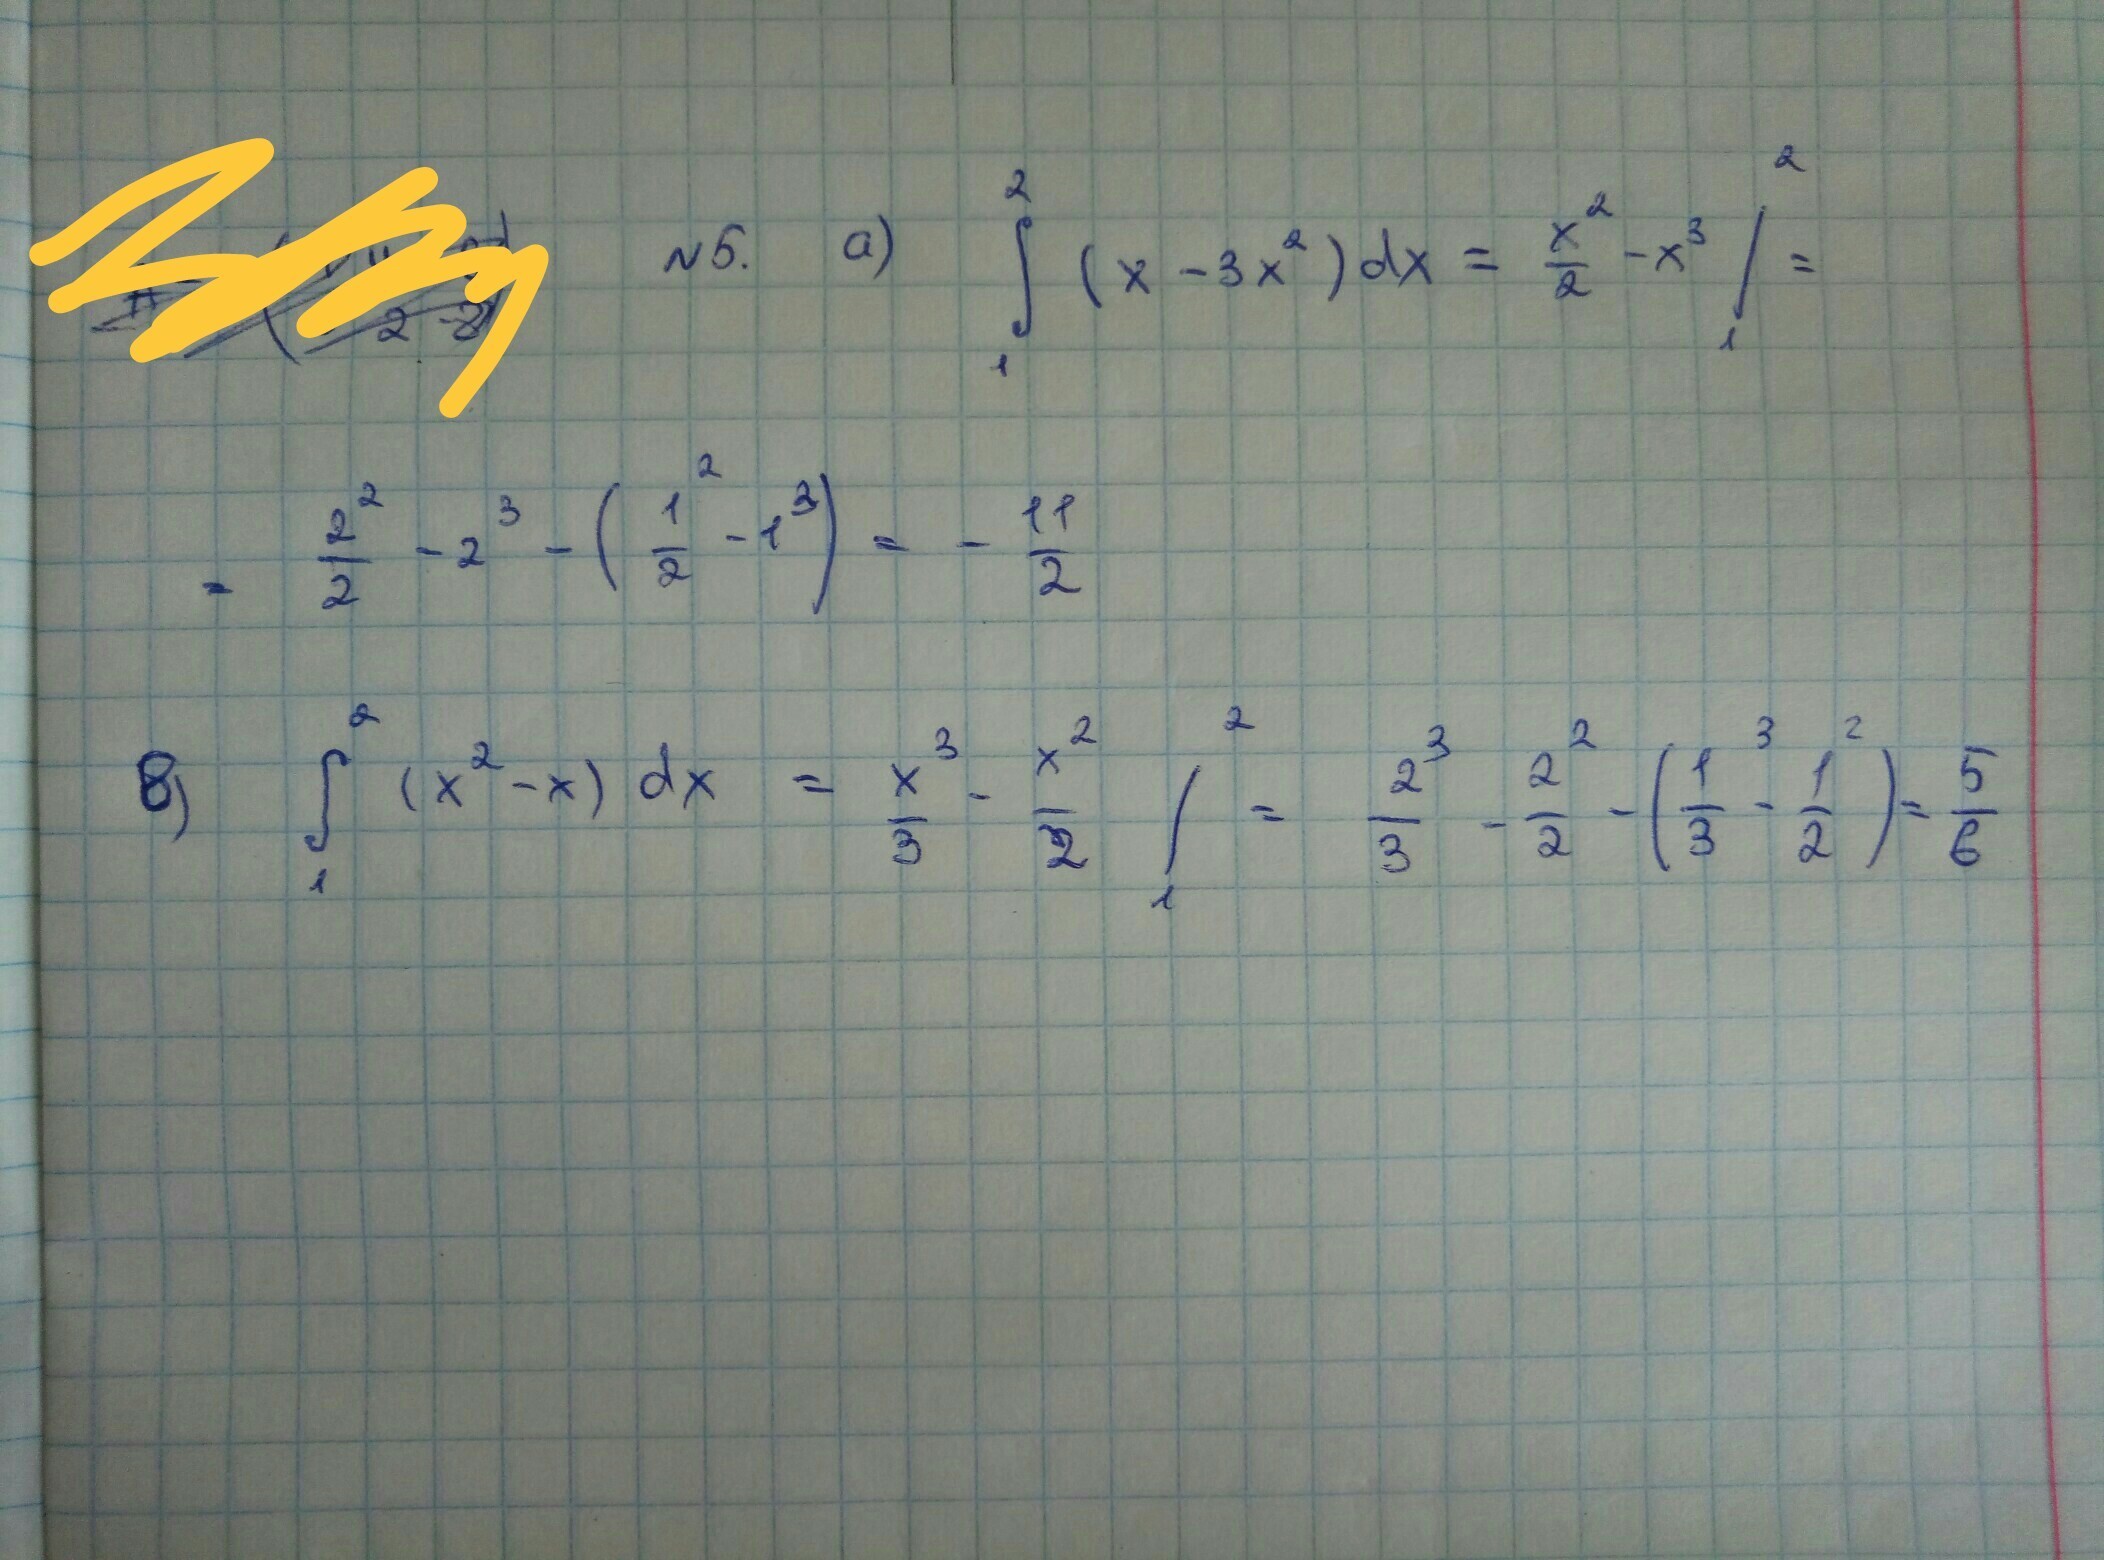 №5. а) ∫₁² (x - 3x²) dx = x²/2 - x³ |₁² =
= 2²/2 - 2³ - (1²/2 - 1³) = - 11/2
в) ∫₁² (x² - x) dx = x³/3 - x²/2 |₁² = 2³/3 - 2²/2 - (1³/3 - 1²/2) = 5/6